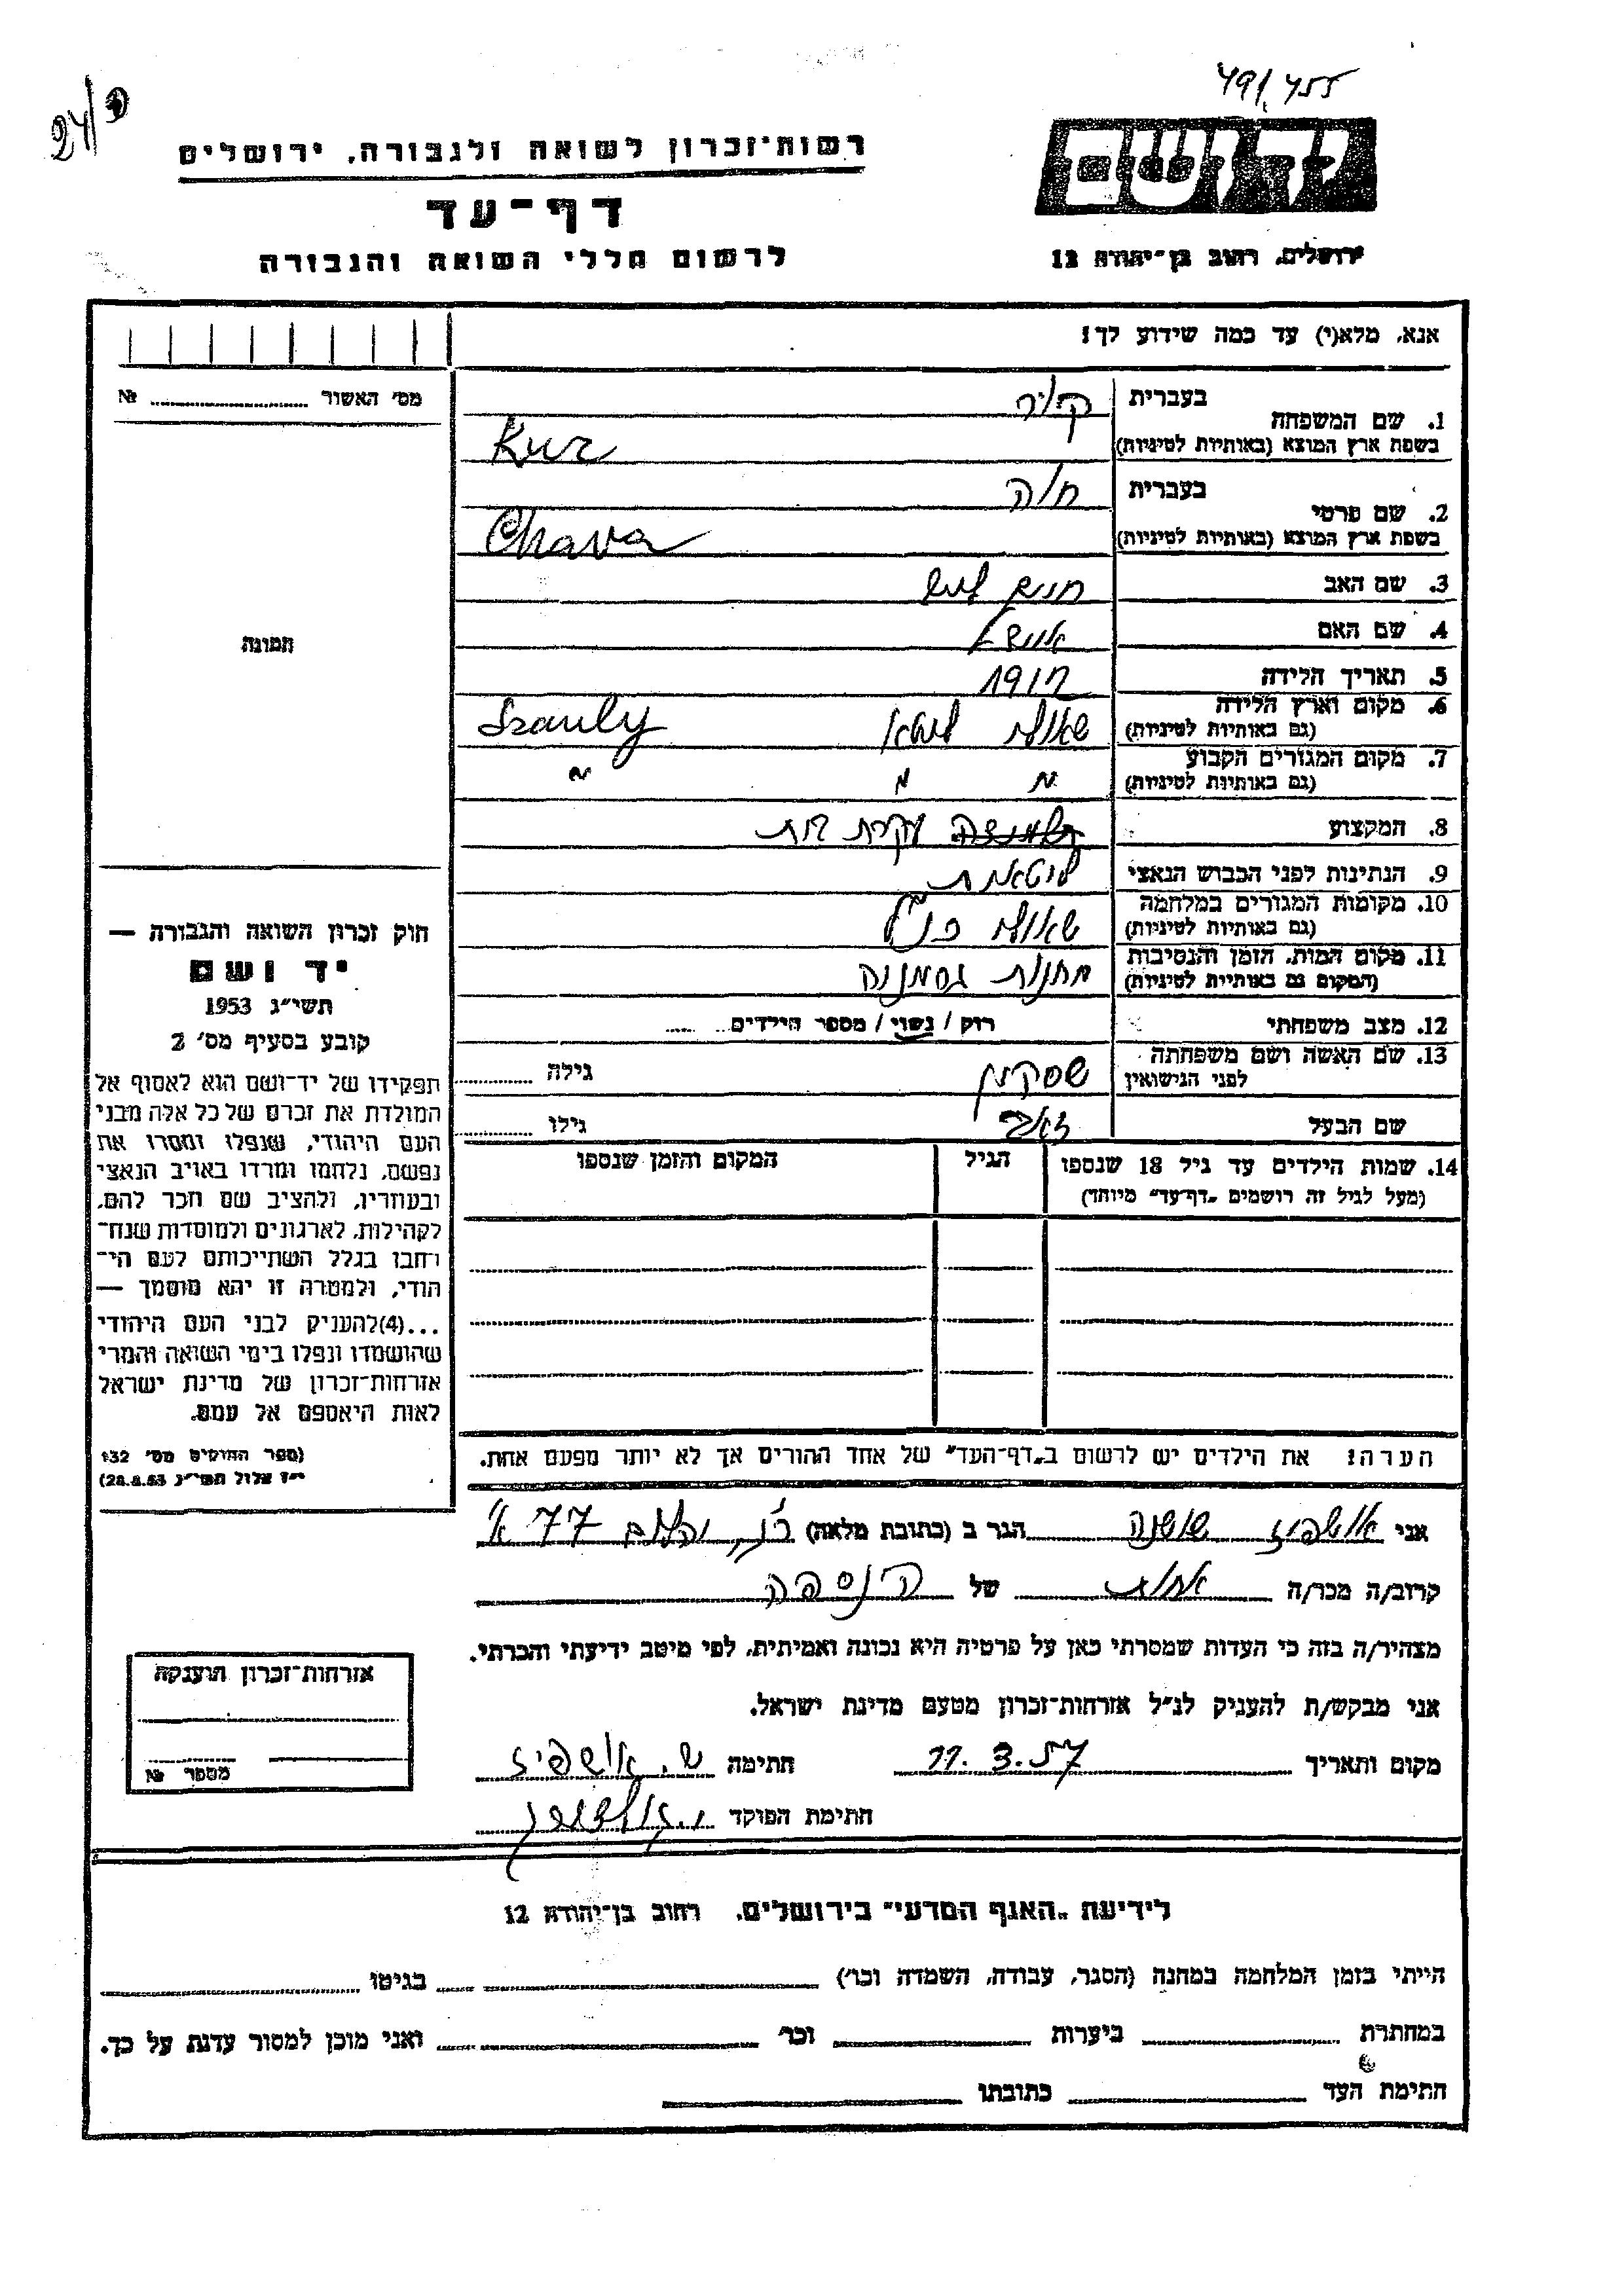 49/455
24/
יד ושם
רשות־זכרון לשואה ולגבורה, ירושלים
דף־עד
ירושלים, רחוב בן־יהודה 12
לרשום חללי השואה והגבורה
אנא, מלא(י) עד כמה שידוע לך!
מס׳ האשור № 
1. שם המשפחה
בעברית
קור
בשפת ארץ המוצא (באותיות לטיניות)
Kur
2. שם פרטי
בעברית
חוה
בשפת ארץ המוצא (באותיות לטיניות)
Chava
3. שם האב חיים
4. שם האם
5. תאריך הלידה 1917
6. מקום וארץ הלידה
(גם באותיות לטיניות) שאולי ליטא Szauly
7. מקום המגורים הקבוע
(גם באותיות לטיניות) " " "
8. המקצוע עקרת בית
9. הנתינות לפני הכבוש הנאצי ליטאית
10. מקומות המגורים במלחמה
(גם באותיות לטיניות) שאולי כנ"ל
11. מקום המות, הזמן והנסיבות
(המקום גם באותיות לטיניות) מחנות גרמניה
12. מצב משפחתי רוק / נשוי / מספר הילדים
13. שם האשה ושם משפחתה
לפני הנישואין גילה
שם הבעל זאב גילו
14. שמות הילדים עד גיל 18 שנספו
(מעל לגיל זה רושמים „דף־עד״ מיוחד)
הגיל
המקום והזמן שנספו
תמונה
חוק זכרון השואה והגבורה —
יד ושם
תשי״ג 1953
קובע בסעיף מס׳ 2
תפקידו של יד־ושם הוא לאסוף אל
המולדת את זכרם של כל אלה מבני
העם היהודי, שנפלו ומסרו את
נפשם, נלחמו ומרדו באויב הנאצי
ובעוזריו, ולהציב שם וזכר להם,
לקהילות, לארגונים ולמוסדות שנח־
רחבו בגלל השתייכותם לעם הי־
הודי, ולמטרה זו יהא מוסמך —
...(4)להעניק לבני העם היהודי
שהושמדו ונפלו בימי השואה והמרי
אזרחות־זכרון של מדינת ישראל
לאות היאספם אל עמם.
(ספר החוקים מס׳ 132
י״ז אלול תשי״ג 28.8.53)
הערה! את הילדים יש לרשום ב„דף־העד״ של אחד ההורים אך לא יותר מפעם אחת.
אני אושפיז שושנה הגר ב (כתובת מלאה) 77 א'
קרוב/ה מכר/ה אחות של הנספה
מצהיר/ה בזה כי העדות שמסרתי כאן על פרטיה היא נכונה ואמיתית, לפי מיטב ידיעתי והכרתי.
אני מבקש/ת להעניק לנ״ל אזרחות־זכרון מטעם מדינת ישראל.
מקום ותאריך 11.3.57 חתימה ש. אושפיז
חתימת הפוקד
אזרחות־זכרון הוענקה
מספר №
לידיעת „האגף המדעי״ בירושלים, רחוב בן־יהודה 12
הייתי בזמן המלחמה במחנה (הסגר, עבודה, השמדה וכר׳) בגיטו
במחתרת ביערות וכר׳ ואני מוכן למסור עדות על כך.
חתימת העד כתובתו